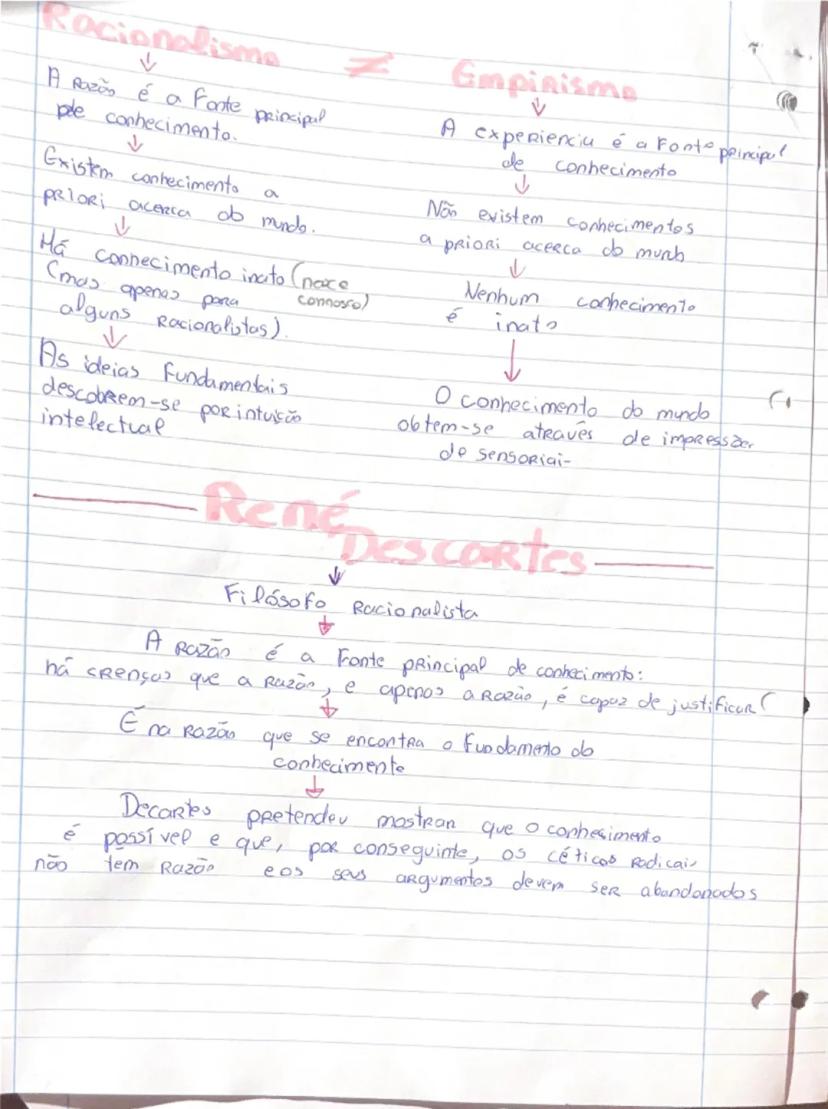 Racionalismo ≠ Empirismo
↓
A Razão é a Fonte principal
de conhecimento.
↓
Existem conhecimento a
priori acerca do mundo.
↓
Há conhecimento inato (nasce
connosco)
(mas apenas para
alguns Racionalistas).
↓
As ideias Fundamentais
descobrem-se por intuição
intelectual
↓
A experiencia é a Fonte principal
de conhecimento
↓
Não existem conhecimentos
a priori acerca do mundo
↓
Nenhum conhecimento
é inato
↓
O conhecimento do mundo
obtem-se através de impressões
de sensoriai-
René
Descartes
↓
Filósofo Racionalista
↓
A Razão é a Fonte principal de conhecimento:
há crenças que a razão, e apenas a razão, é capaz de justificar (
↓
É na Razão que se encontra o Fundamento do
conhecimento
↓
Decartes pretendeu mostrar que o conhesimento
é possível e que, por conseguinte, os céticos radicais
não tem Razão e os seus argumentos devem ser abandonados